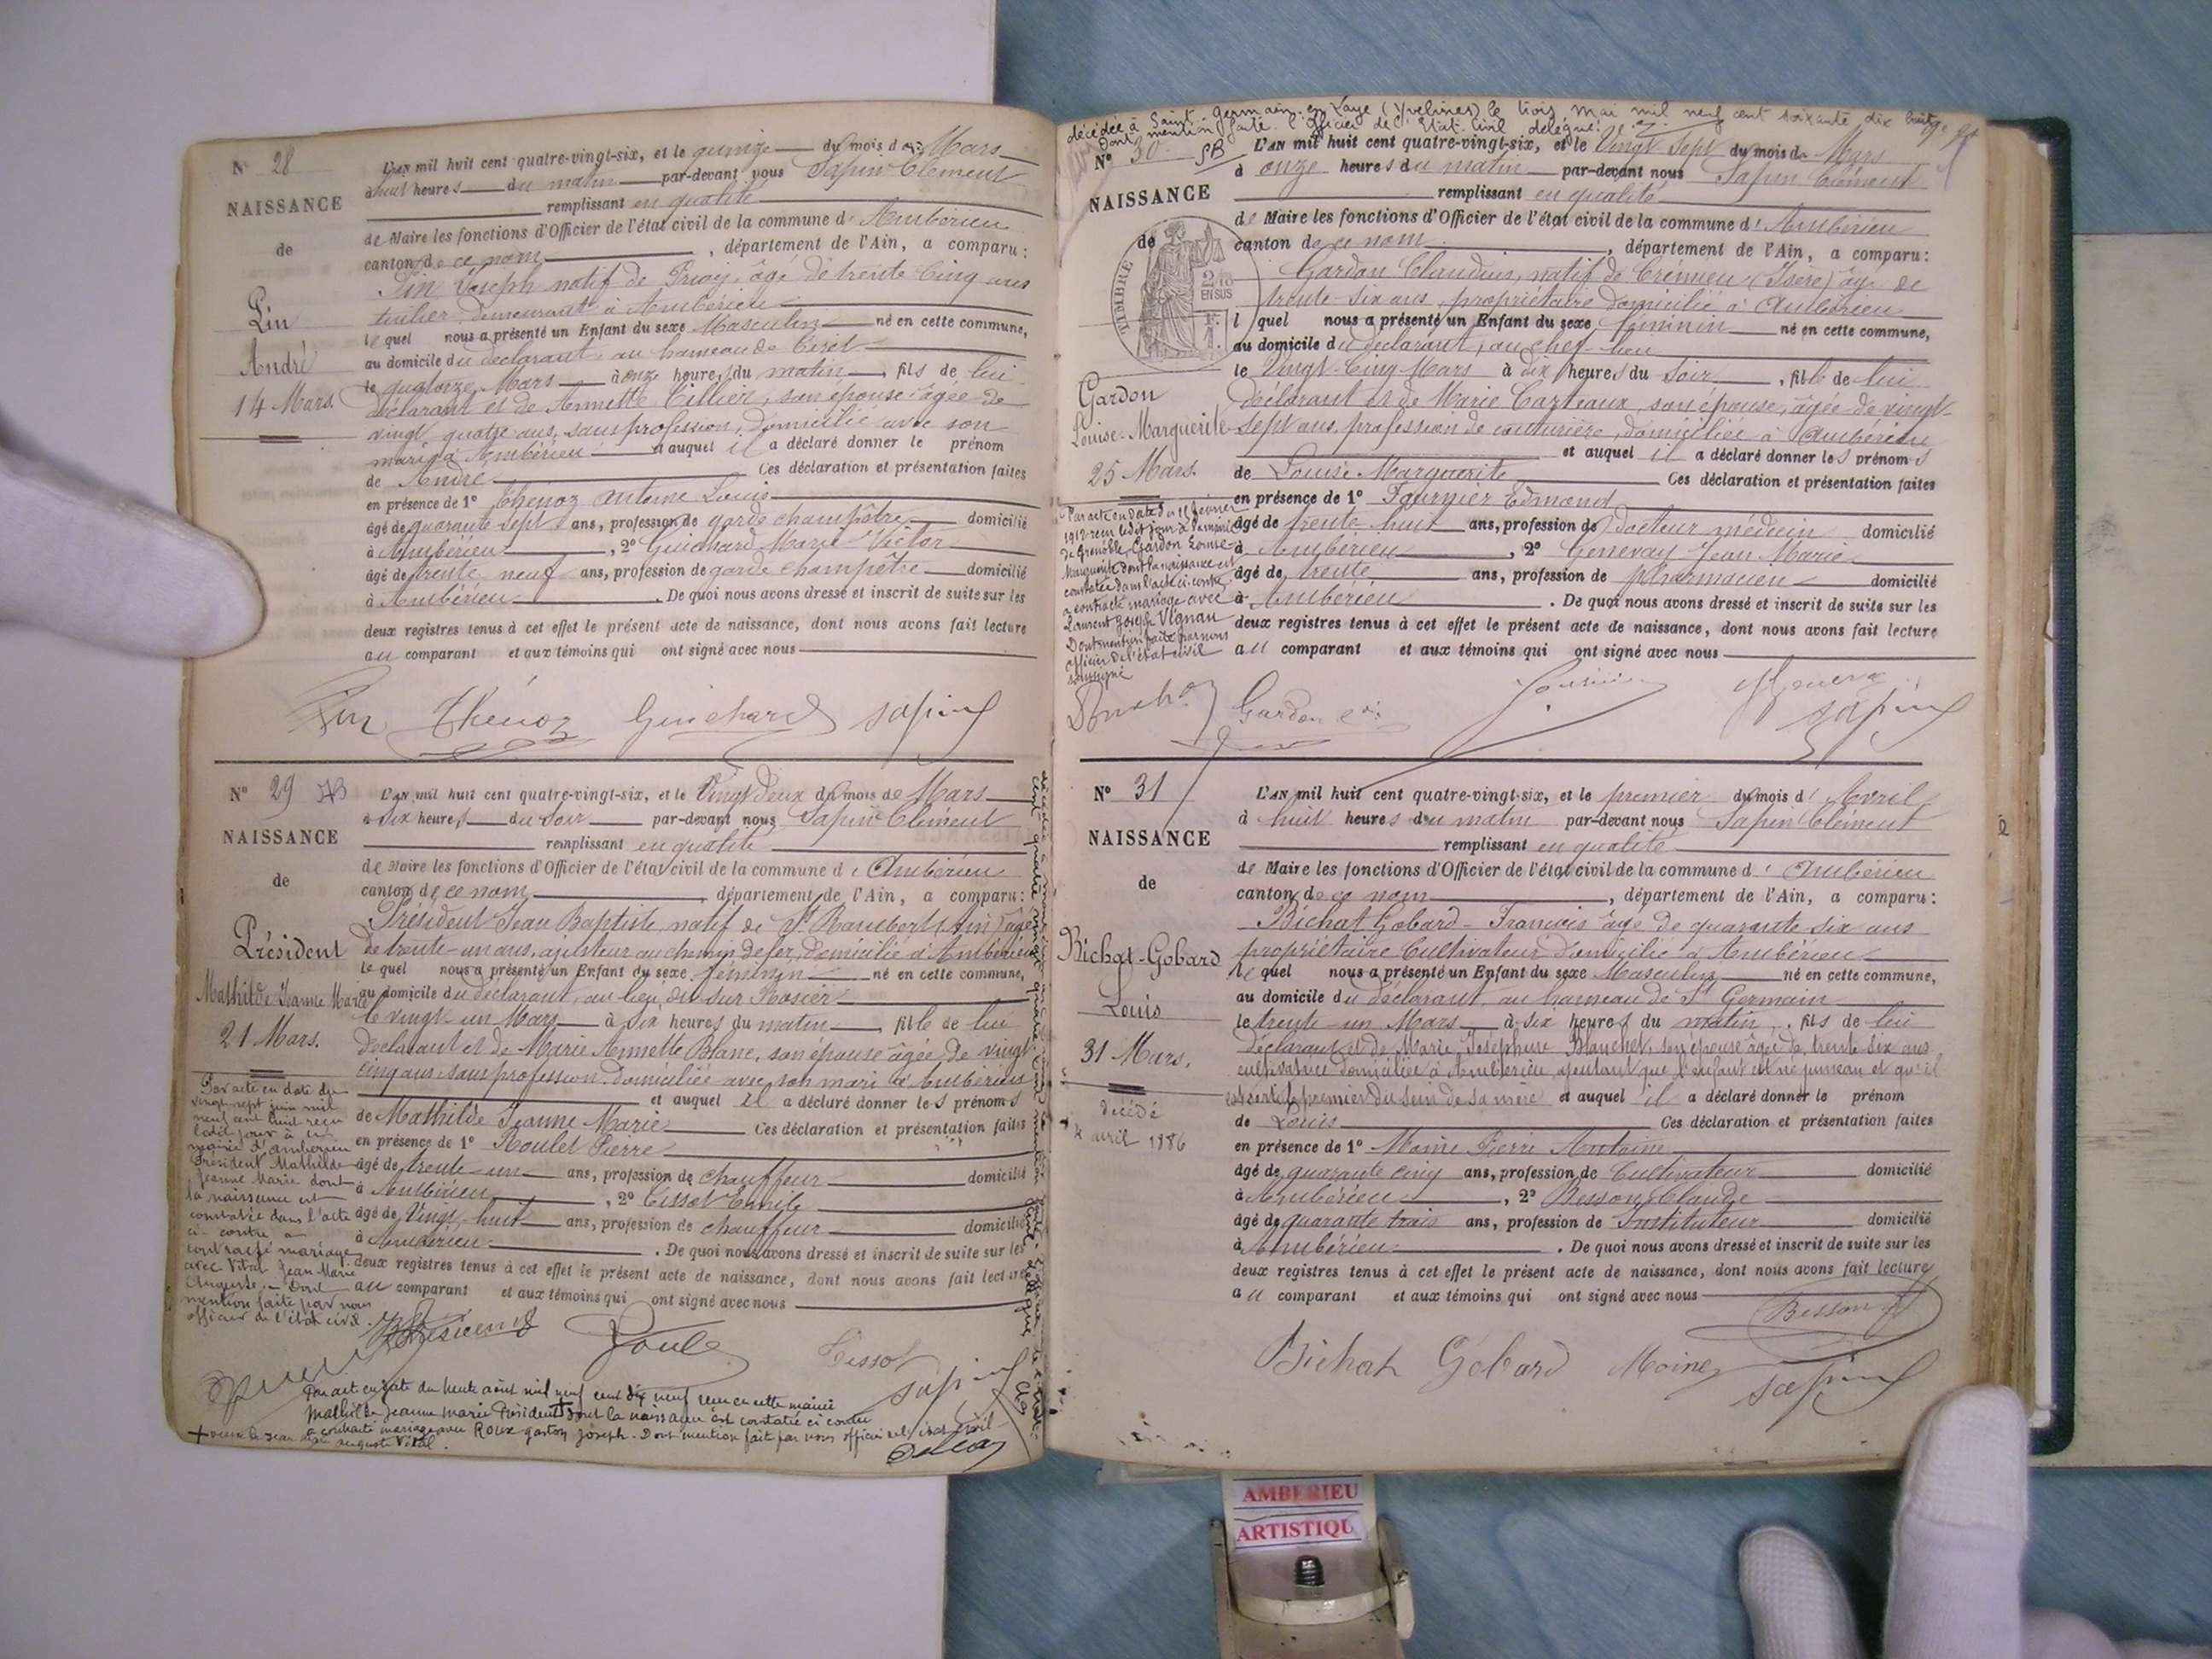 N° 28
L'AN mil huit cent quatre-vingt-six, et le quinze du mois de Mars
à huit heures du matin par-devant nous Sapin Clément
NAISSANCE
remplissant en qualité
de Maire les fonctions d'Officier de l'état civil de la commune d'Ambérieu
de
canton de ce nom, département de l'Ain, a comparu:
Pin Joseph natif de Priay, âgé de trente cinq ans
tuilier demeurant à Ambérieu
Pin
lequel nous a présenté un Enfant du sexe Masculin né en cette commune,
André
au domicile du déclarant, au hameau de
le quatorze Mars à onze heures du matin, fils de lui
14 Mars.
déclarant et de Annette Tillier, son épouse âgée de
vingt quatre ans, sans profession, domicilié avec son
mari à Ambérieu et auquel il a déclaré donner le prénom
de André Ces déclaration et présentation faites
en présence de 1° Thénoz Antoine Louis
âgé de quarante sept ans, profession de garde champêtre domicilié
à Ambérieu, 2° Guichard Marie Victor
âgé de trente neuf ans, profession de garde champêtre domicilié
à Ambérieu. De quoi nous avons dressé et inscrit de suite sur les
deux registres tenus à cet effet le présent acte de naissance, dont nous avons fait lecture
au comparant et aux témoins qui ont signé avec nous
Pin Thénoz Guichard Sapin
N° 29
L'AN mil huit cent quatre-vingt-six, et le Vingt deux du mois de Mars
à six heures du soir par-devant nous Sapin Clément
NAISSANCE
remplissant en qualité
de Maire les fonctions d'Officier de l'état civil de la commune d'Ambérieu
de
canton de ce nom, département de l'Ain, a comparu:
Président Jean Baptiste, natif de St Rambert (Ain) âgé
Président
de trente-un ans, ajusteur au chemin de fer, domicilié à Ambérieu
lequel nous a présenté un Enfant du sexe féminin né en cette commune,
Mathilde Jeanne Marie
au domicile du déclarant, au lieu dit sur Rosier
le vingt-un Mars à six heures du matin, fille de lui
21 Mars.
déclarant et de Marie Annette Blanc, son épouse âgée de vingt
cinq ans sans profession domiciliée avec son mari à Ambérieu
et auquel il a déclaré donner les prénoms
de Mathilde Jeanne Marie Ces déclaration et présentation faites
en présence de 1° Roulet Pierre
âgé de trente-un ans, profession de chauffeur domicilié
à Ambérieu, 2° Tissot Emile
âgé de Vingt-huit ans, profession de chauffeur domicilié
à Ambérieu. De quoi nous avons dressé et inscrit de suite sur les
deux registres tenus à cet effet le présent acte de naissance, dont nous avons fait lecture
au comparant et aux témoins qui ont signé avec nous
Par acte en date du
vingt-sept juin mil
neuf cent huit reçu
ledit jour à la
mairie d'Ambérieu
Président Mathilde
Jeanne Marie dont
la naissance est
constatée dans l'acte
ci-contre a
contracté mariage
avec Vital Jean Marie
Auguste. Dont
mention faite par nous
officier de l'état civil.
Président Tissot Sapin
Par acte en date du trente août mil neuf cent dix neuf reçu en cette mairie
Mathilde Jeanne Marie Président + dont la naissance est constatée ci contre
a contracté mariage avec Roux gaston Joseph. Dont mention fait par nous officier de l'état civil
+ veuve de Jean Marie Auguste Vital.
décédée à Saint Germain en Laye (Yvelines) le trois mai mil neuf cent soixante dix huit
Dont mention faite. L'Officier de l'Etat Civil délégué.
N° 30 SB
L'AN mil huit cent quatre-vingt-six, et le Vingt Sept du mois de Mars
à onze heures du matin par-devant nous Sapin Clément
NAISSANCE
remplissant en qualité
de Maire les fonctions d'Officier de l'état civil de la commune d'Ambérieu
de
canton de ce nom, département de l'Ain, a comparu:
TIMBRE
EN SUS
Gardon Claudius, natif de Crémieu (Isère) âgé de
trente-six ans, propriétaire domicilié à Ambérieu
lequel nous a présenté un Enfant du sexe féminin né en cette commune,
au domicile du déclarant, au chef-lieu
le Vingt-Cinq Mars à dix heures du soir, fille de lui
Gardon
déclarant et de Marie Carteaux, son épouse, âgée de vingt-
Louise-Marguerite
sept ans profession de couturière, domiciliée à Ambérieu
et auquel il a déclaré donner les prénoms
25 Mars.
de Louise Marguerite Ces déclaration et présentation faites
en présence de 1° Fournier Edmond
âgé de trente-huit ans, profession de Docteur médecin domicilié
à Ambérieu, 2° Genevay Jean Marie
âgé de trente ans, profession de pharmacien domicilié
à Ambérieu. De quoi nous avons dressé et inscrit de suite sur les
deux registres tenus à cet effet le présent acte de naissance, dont nous avons fait lecture
au comparant et aux témoins qui ont signé avec nous
Par acte en date du février
1912 reçu ledit jour à la mairie
de Grenoble, Gardon Louise
Marguerite dont la naissance est
constatée dans l'acte ci-contre
a contracté mariage avec
Laurent Joseph Vignau
Dont mention faite par nous
officier de l'état civil
soussigné
Gardon Sapin
N° 31
L'AN mil huit cent quatre-vingt-six, et le premier du mois d'Avril
à huit heures du matin par-devant nous Sapin Clément
NAISSANCE
remplissant en qualité
de Maire les fonctions d'Officier de l'état civil de la commune d'Ambérieu
de
canton de ce nom, département de l'Ain, a comparu:
Bichat Gobard-François âgé de quarante six ans
Bichat-Gobard
propriétaire Cultivateur domicilié à Ambérieu
lequel nous a présenté un Enfant du sexe Masculin né en cette commune,
au domicile du déclarant, au hameau de St Germain
Louis
le trente-un Mars à six heures du matin, fils de lui
31 Mars.
déclarant et de Marie Joséphine Blanchet, son épouse âgée de trente six ans
cultivatrice domiciliée à Ambérieu, ajoutant que l'enfant est né jumeau et qu'il
est sorti le premier du sein de sa mère et auquel il a déclaré donner le prénom
décédé
avril 1886
de Louis Ces déclaration et présentation faites
en présence de 1° Moine Pierre Antoine
âgé de quarante cinq ans, profession de Cultivateur domicilié
à Ambérieu, 2° Besson Claude
âgé de quarante trois ans, profession de Instituteur domicilié
à Ambérieu. De quoi nous avons dressé et inscrit de suite sur les
deux registres tenus à cet effet le présent acte de naissance, dont nous avons fait lecture
au comparant et aux témoins qui ont signé avec nous
Besson
Bichat Gobard Moine Sapin
AMBERIEU
ARTISTIQU